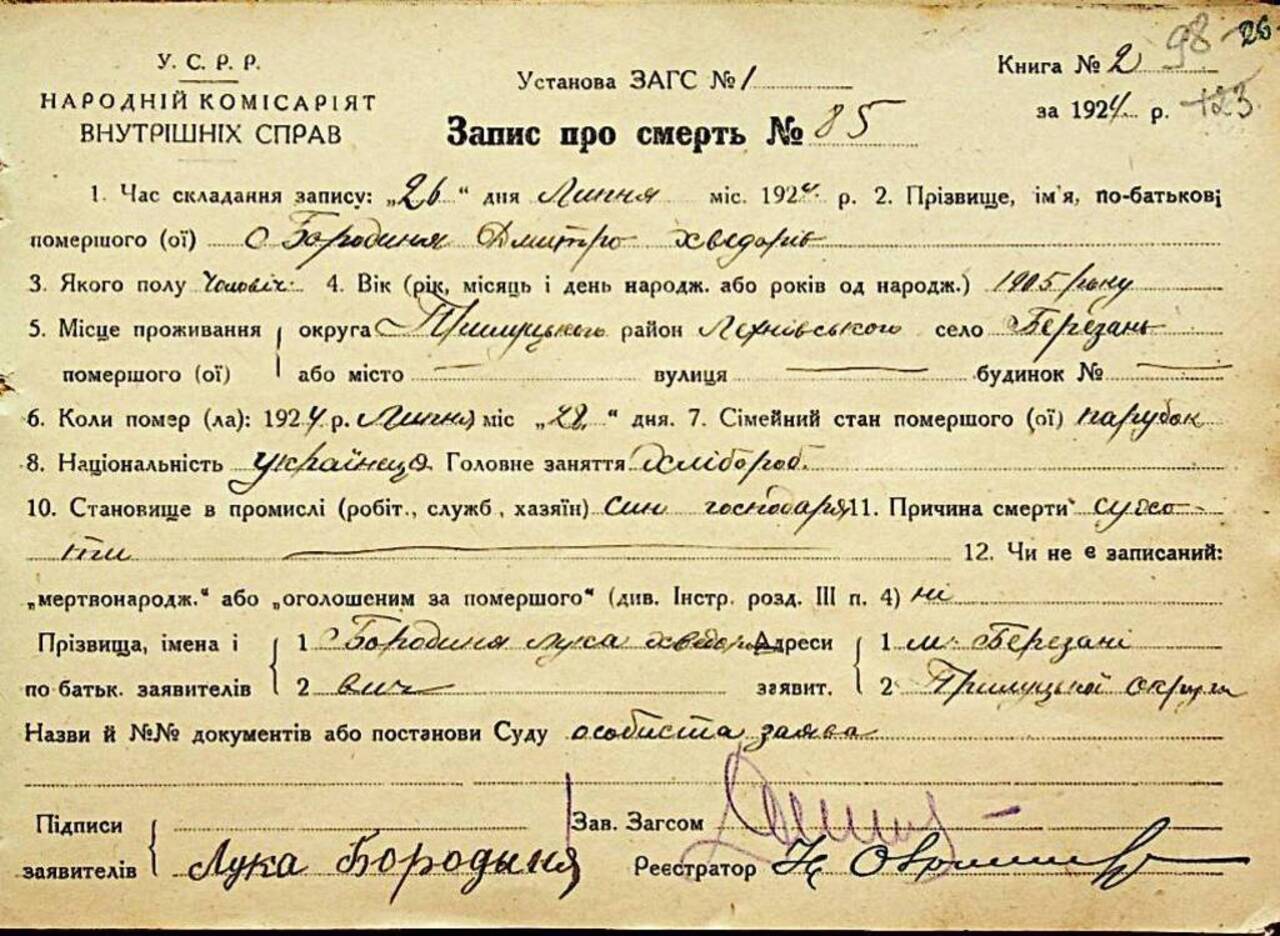 98 26
У. С. Р. Р.
НАРОДНІЙ КОМІСАРІЯТ
ВНУТРІШНІХ СПРАВ
Установа ЗАГС № 1
Запис про смерть № 85
Книга № 2
за 1924 р. 123
1. Час складання запису: „26“ дня Липня міс. 1924 р. 2. Прізвище, ім'я, по-батькові
помершого (ої) Бородиня Дмитро Хведорів
3. Якого полу Чоловіч. 4. Вік (рік, місяць і день народж. або років од народж.) 1905 року
5. Місце проживання округа Прилуцького район Яготівського село Березань
помершого (ої) або місто — вулиця — будинок № —
6. Коли помер (ла): 1924 р. Липня міс „22“ дня. 7. Сімейний стан помершого (ої) парубок
8. Національність Українець. Головне заняття Хлібороб.
10. Становище в промислі (робіт., служб, хазяїн) син господаря 11. Причина смерти сухо-
ти — 12. Чи не є записаний:
„мертвонародж.“ або „оголошеним за помершого“ (див. Інстр. розд. III п. 4) ні
Прізвища, імена і 1 Бородиня Лука Хведоро Адреси 1 м. Березані
по батьк. заявителів 2 вич заявит. 2 Прилуцької округи
Назви й №№ документів або постанови Суду особиста заява
Підписи Зав. Загсом
заявителів Лука Бородыня Реєстратор